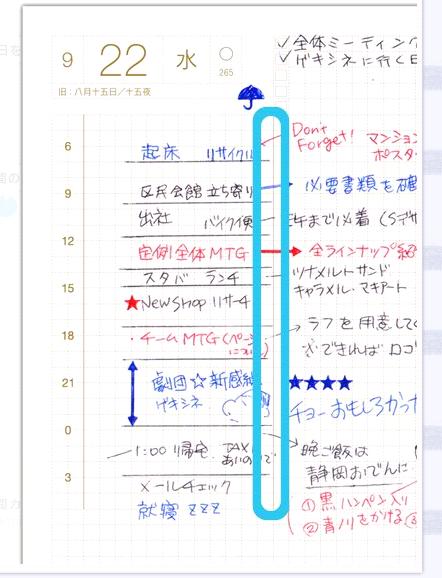 9 22 水 265
旧：八月十五日／十五夜
✓全体ミーティン
✓ゲキシネに行く日
6
起床 リサイクル
Don't Forget! マンション
ポスタ
9
区民会館 立ち寄り
必要書類を確
出社 バイク便
午まで必着（Sデザ
12
定例全体MTG
全ラインナップ紹
スタバ ランチ
ツナメルトサンド
キャラメル・マキアート
15
★NewShop リサーチ
18
・チームMTG（ページについて）
ラフを用意して
※できればロゴ
21
劇団☆新感線
ゲキシネ
★★★★
チョーおもしろかっ
0
1:00 帰宅
晩ご飯は
静岡おでんに
3
メールチェック
就寝 ZZZ
①黒ハンペン入り
②青ノリをかける